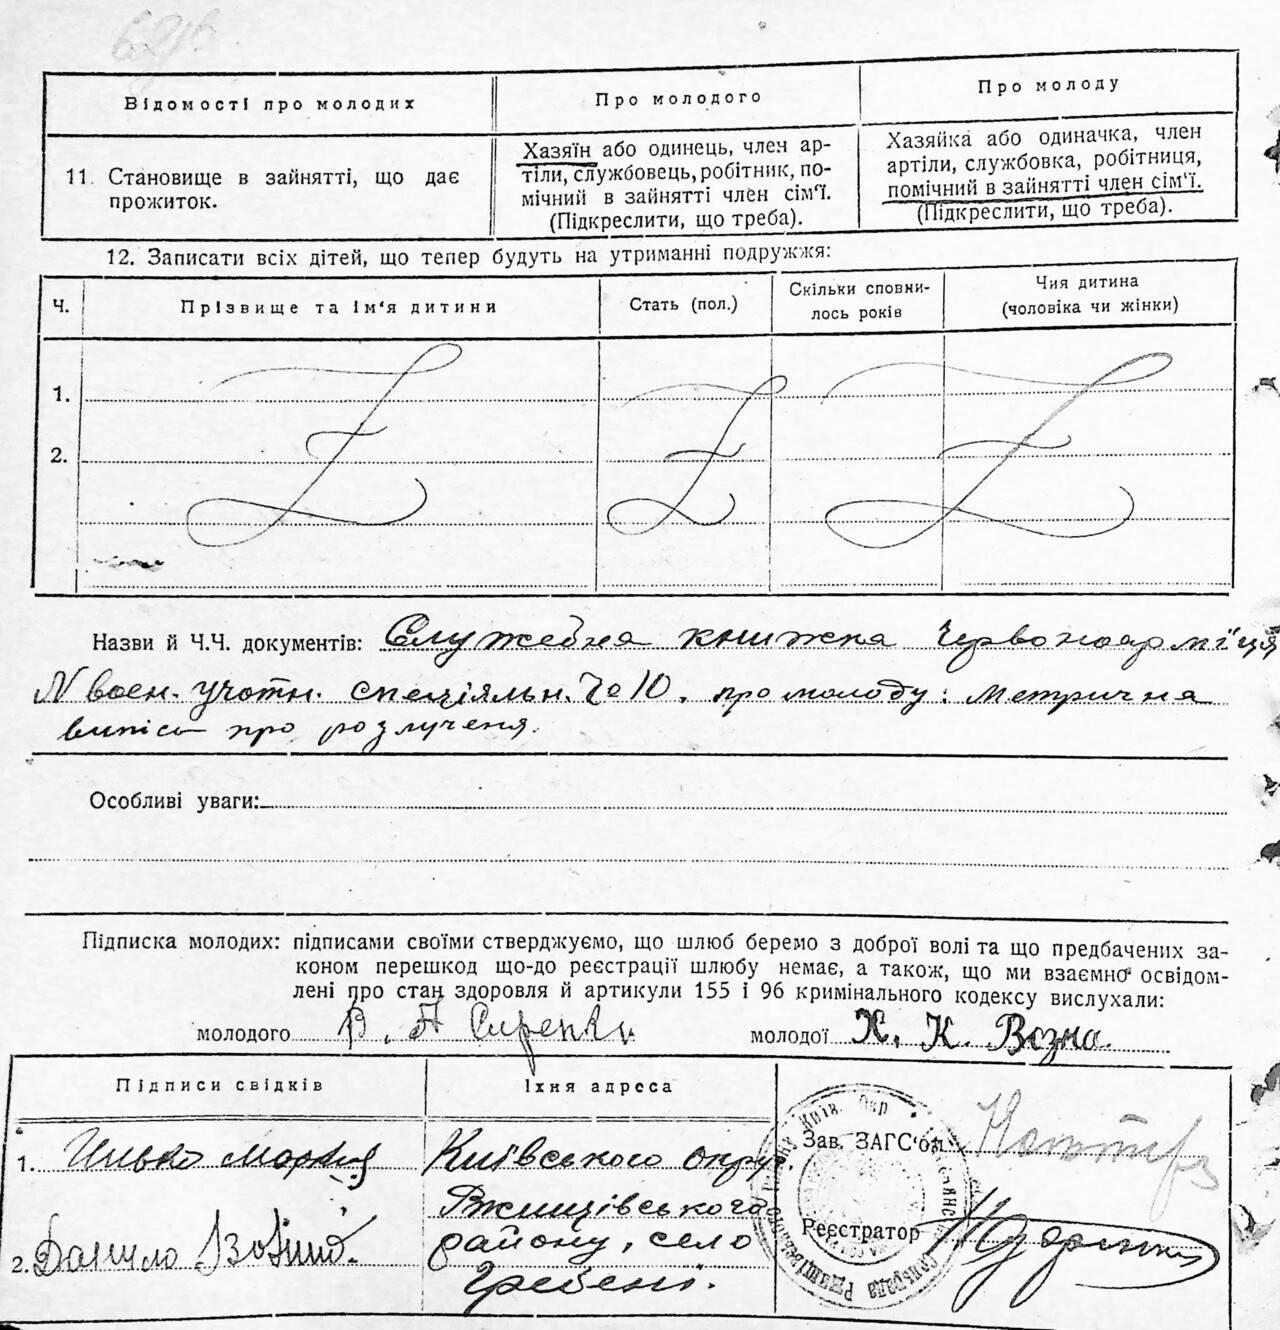 Відомості про молодих
Про молодого
Про молоду
11. Становище в зайнятті, що дає
прожиток.
Хазяїн або одинець, член ар-
тіли, службовець, робітник, по-
мічний в зайнятті член сім'ї.
(Підкреслити, що треба).
Хазяйка або одиначка, член
артіли, службовка, робітниця,
помічний в зайнятті член сім'ї.
(Підкреслити, що треба).
12. Записати всіх дітей, що тепер будуть на утриманні подружжя:
Ч.
Прізвище та ім'я дитини
Стать (пол.)
Скільки сповни-
лось років
Чия дитина
(чоловіка чи жінки)
1.
2.
Назви й Ч.Ч. документів: Служебна книжка Червоноармійця
N воен. учотн. спеціяльн. 10. про молоду: Метрична
випісь про розлученя.
Особливі уваги:
Підписка молодих: підписами своїми стверджуємо, що шлюб беремо з доброї волі та що предбачених за-
коном перешкод що-до реєстрації шлюбу немає, а також, що ми взаємно освідом-
лені про стан здоровля й артикули 155 і 96 кримінального кодексу вислухали:
молодого В. А Сиренко
молодої Х. К. Возна.
Підписи свідків
Їхня адреса
1.
Київського округ.
Ржищівського
району, село
Гребені.
2. Данило
Зав. ЗАГС'ом
Реєстратор